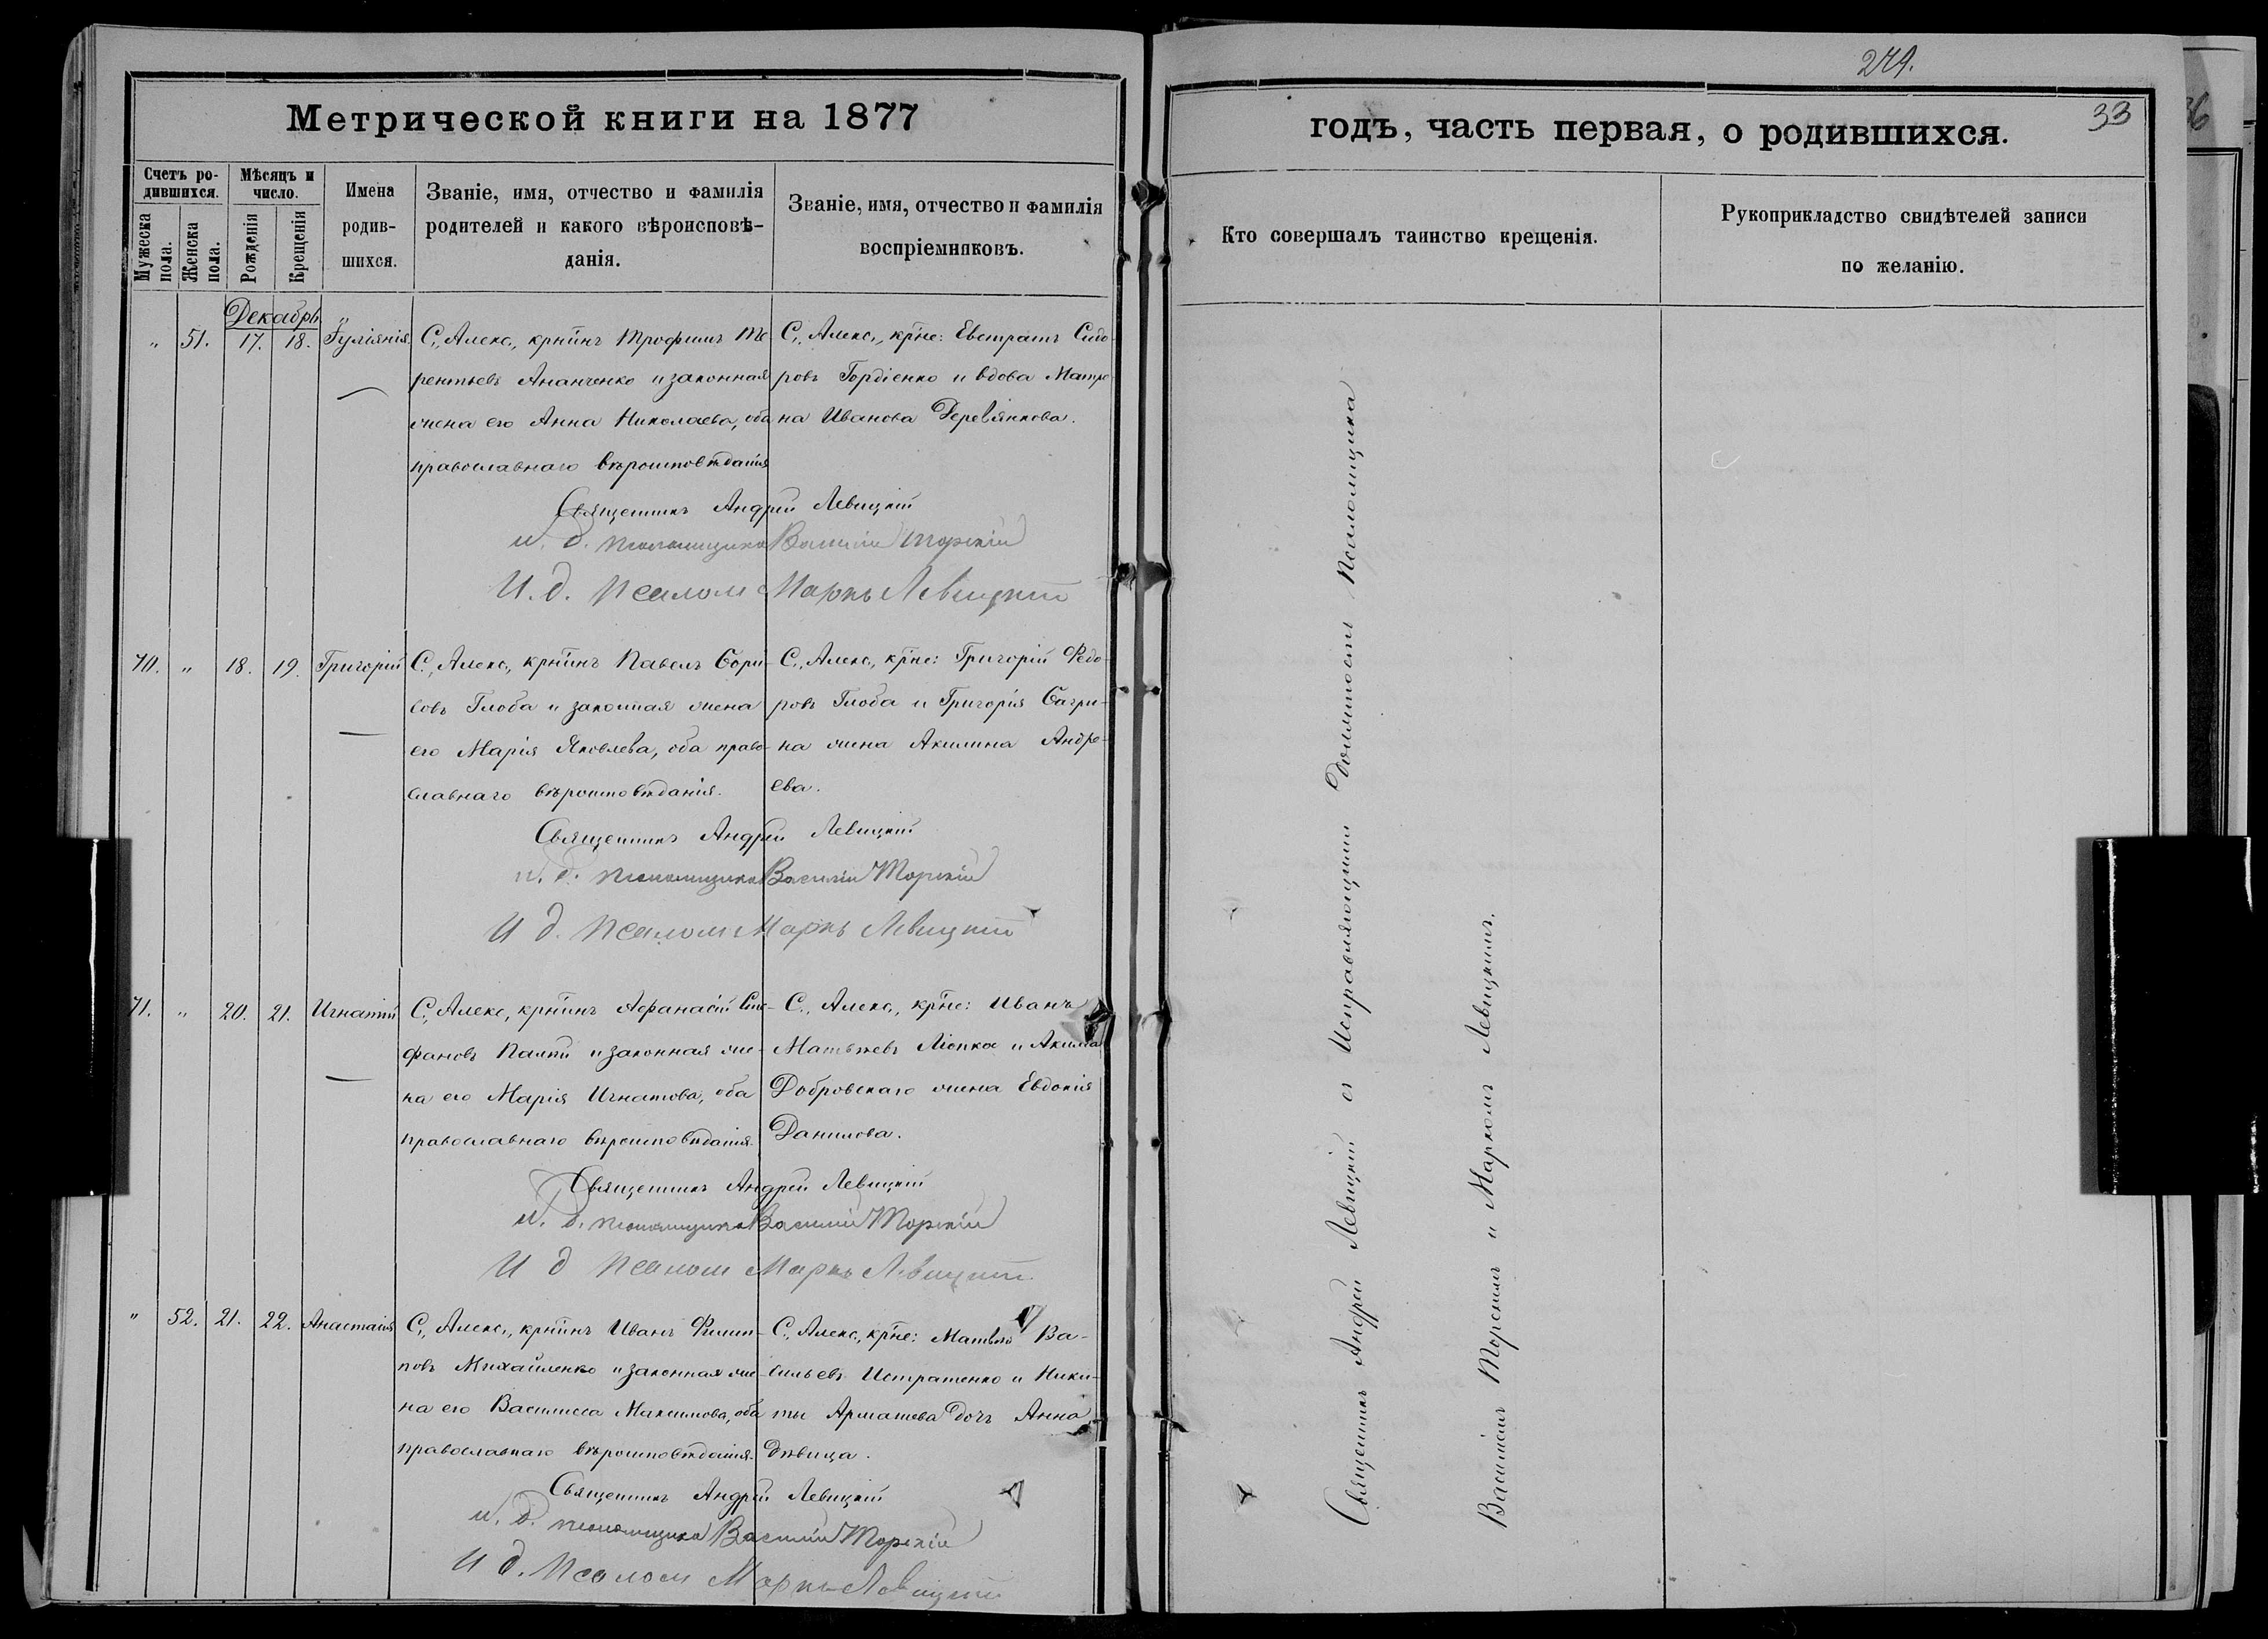 Метрической книги на 1877
Счетъ ро-
дившихся.
Мужеска
пола.
Женска
пола.
Мѣсяцъ и
число.
Рожденія
Крещенія
Имена
родив-
шихся.
Званіе, имя, отчество и фамилія
родителей и какого вѣроисповѣ-
данія.
Званіе, имя, отчество и фамилія
воспріемниковъ.
Декабрь
" 51. 17. 18. Іуліянія
С., Алекс., крнинъ Трофимъ Те
рентьевъ Ананченко и законная
жена его Анна Николаева, оба
православнаго вѣроисповѣданія
С., Алекс., крне: Евстратъ Сидо-
ровъ Гордіенко и вдова Матре-
на Иванова Деревянкова.
Священникъ Андрей Левицкій
и. д. псаломщика Василій Торскій
И. д. псалом Маркъ Левицкій
70. " 18. 19. Григорій
С., Алекс., крнинъ Павелъ Бори-
совъ Глоба и законная жена
его Марія Яковлева, оба право-
славнаго вѣроисповѣданія.
С., Алекс., крне: Григорій Федо-
ровъ Глоба и Григорія
на жена Акилина Андре-
ева.
Священникъ Андрей Левицкій
и. д. псаломщика Василій Торскій
И д. псалом Маркъ Левицкій
71. " 20. 21. Игнатій
С., Алекс., крнинъ Афанасій Сте-
фановъ и законная же-
на его Марія Игнатова, оба
православнаго вѣроисповѣданія.
С., Алекс., крне: Иванъ
Матвѣевъ и Акима
Добровскаго жена Евдокія
Данилова.
Священникъ Андрей Левицкій
и. д. псаломщика Василій Торскій
И д псалом Маркъ Левицкій
" 52. 21. 22. Анастасія
С., Алекс., крнинъ Иванъ Филип-
повъ Михайленко и законная же-
на его Василиса Максимова, оба
православнаго вѣроисповѣданія.
С., Алекс., крне: Матвѣй Ва-
сильевъ Истратенко и Ники-
ты дочь Анна
дѣвица.
Священникъ Андрей Левицкій
и. д. псаломщика Василій Торскій
И д. псалом Маркъ Левицкій
33
годъ, часть первая, о родившихся.
Кто совершалъ таинство крещенія.
Рукоприкладство свидѣтелей записи
по желанію.
Священникъ Андрей Левицкій съ Исправляющими должность Псаломщика
Василіемъ Торскимъ и Маркомъ Левицкимъ.